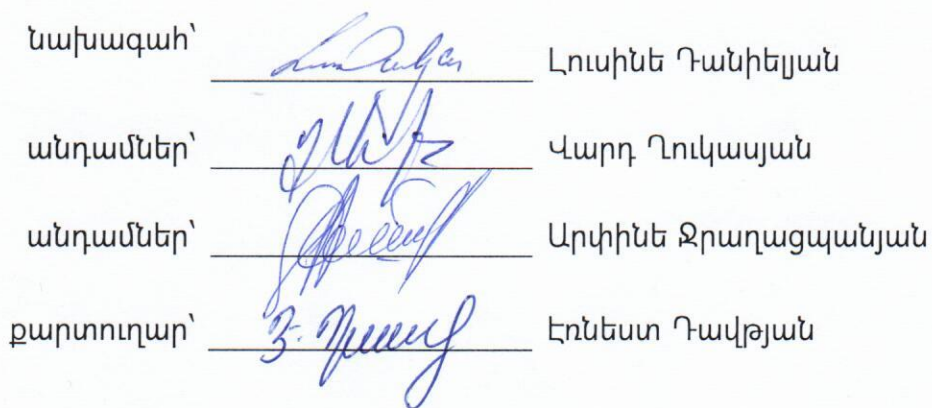 նախագահ՝ Լուսինե Դանիելյան
անդամներ՝ Վարդ Ղուկասյան
անդամներ՝ Արփինե Ջրաղացպանյան
քարտուղար՝ Էռնեստ Դավթյան